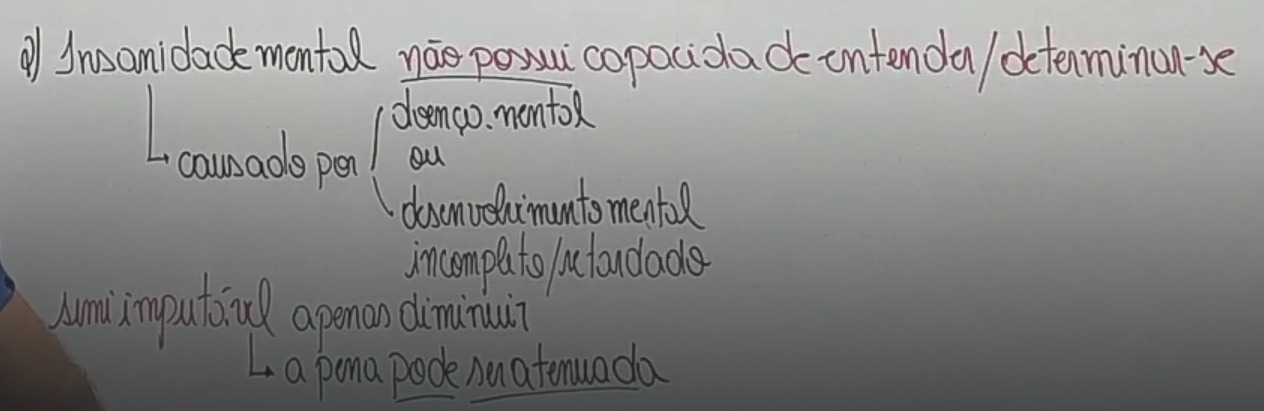 a) Insanidade mental não possui capacidade entender/determinar-se
doença mental
↳ causado por ou
desenvolvimento mental
incompleto/retardado
semi imputável apenas diminuir
↳ a pena pode ser atenuada